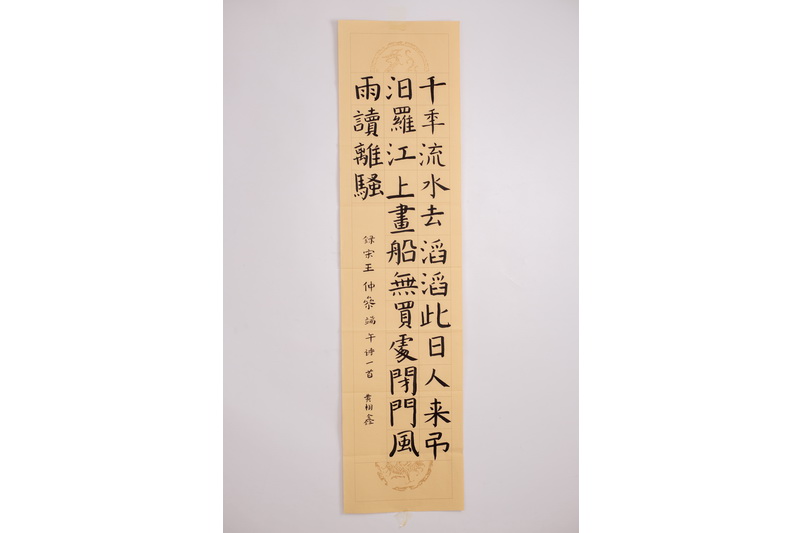 千年流水去滔滔此日人来弔
汨羅江上畫船無買處閉門風
雨讀離騷
録宋王仲參端午诗一首
黄樹鑫